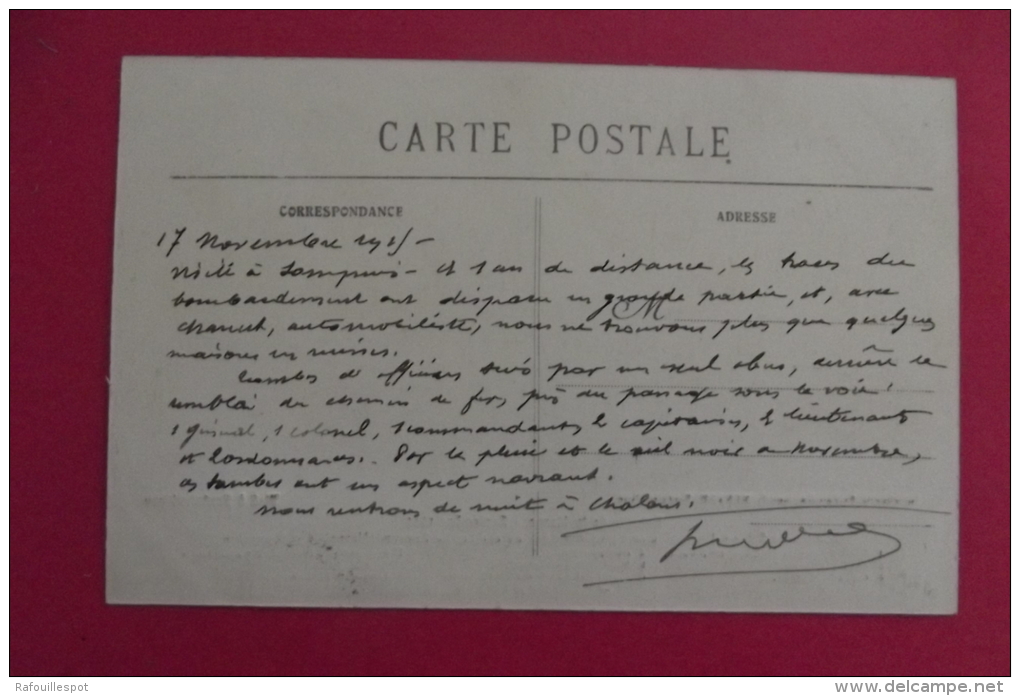 CARTE POSTALE
CORRESPONDANCE
ADRESSE
17 Novembre 1915 -
Visite à Sompuis - A 1 an de distance, les traces du
bombardement ont disparu en grande partie, et, avec
automobiliste, nous ne trouvons plus que quelques
maisons en ruines.
Tombes d'officiers tués par un seul obus, derrière le
remblai du chemin de fer, près du passage sous la voie :
1 général, 1 colonel, 1 commandant, 2 capitaines, 2 lieutenants
et 2 ordonnances. Par la pluie et le ciel noir de Novembre,
ces tombes ont un aspect navrant.
Nous rentrons de nuit à Chalons.
Rafouillespot
delcampe.net